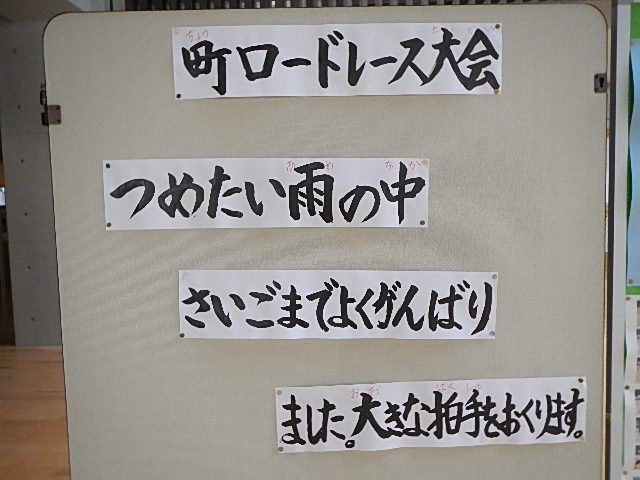 町ロードレース大会
つめたい雨の中
さいごまでよくがんばり
ました。大きな拍手をおくります。